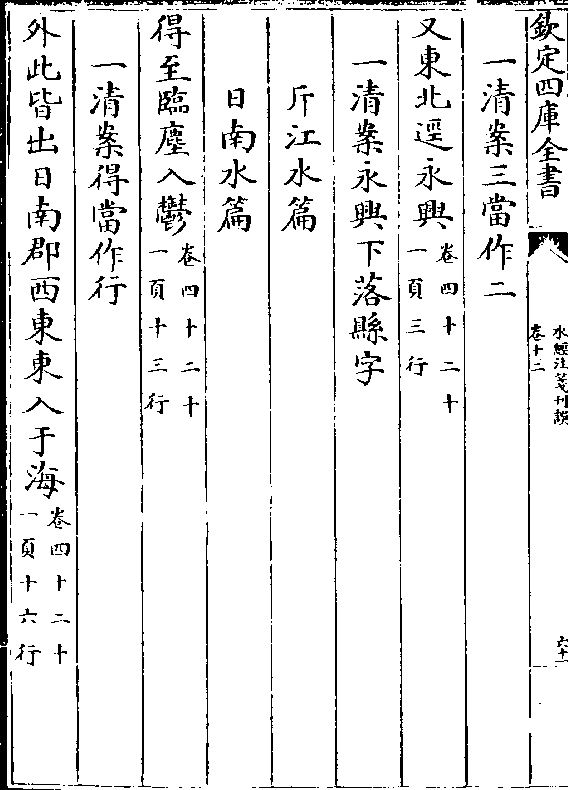 欽定四庫全書
水經注箋刊誤
卷十二
六十二
一清案三當作二
又東北逕永興卷四十二十一頁三行
一清案永興下落縣字
斤江水篇
日南水篇
得至臨塵入鬱卷四十二十一頁十三行
一清案得當作行
外此皆出日南郡西東東入于海卷四十二十一頁十六行